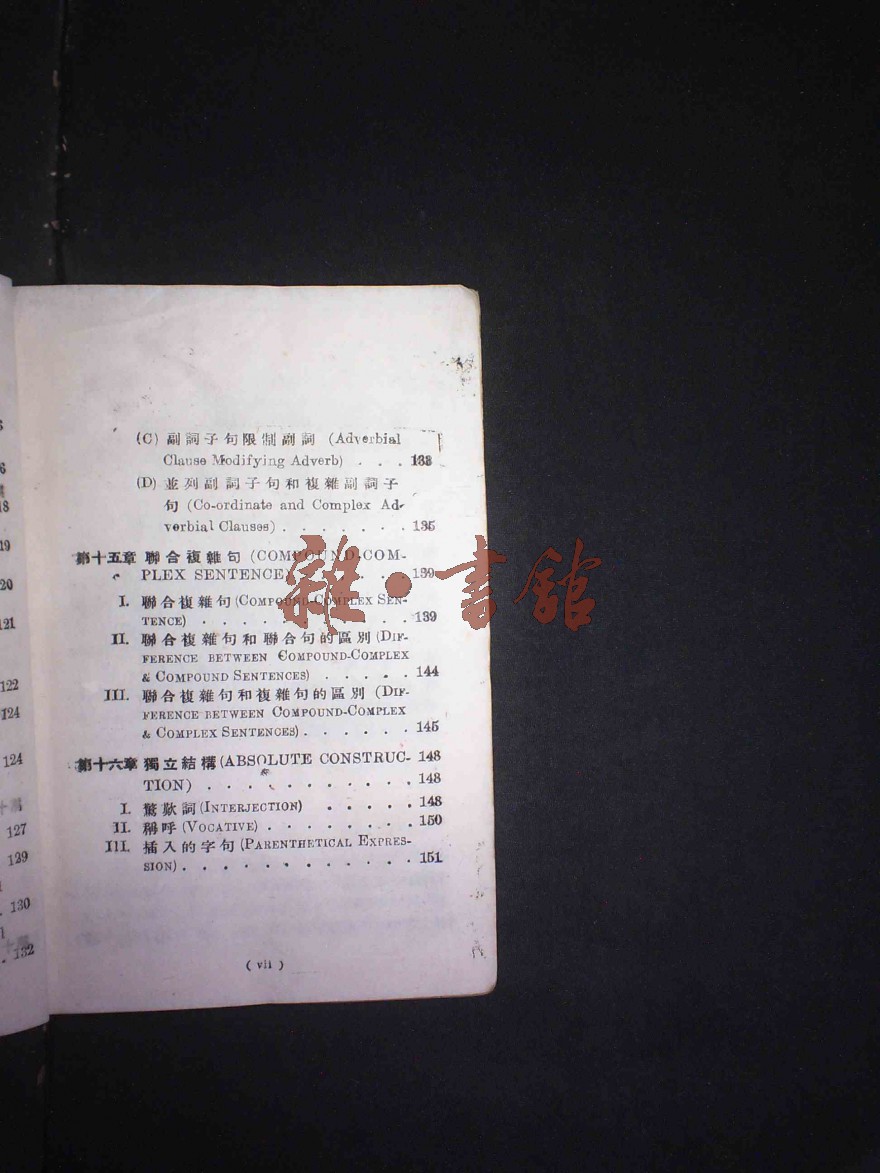 8
19
20
121
122
124
124
127
129
130
132
(C) 副詞子句限制副詞 (Adverbial
Clause Modifying Adverb) . . . 133
(D) 並列副詞子句和複雜副詞子
句 (Co-ordinate and Complex Ad-
verbial Clauses) . . . . . . . 135
第十五章 聯合複雜句 (COMPOUND-COM-
PLEX SENTENCE) . . . . . 139
I. 聯合複雜句 (COMPOUND-COMPLEX SEN-
TENCE) . . . . . . . . . . 139
II. 聯合複雜句和聯合句的區別 (DIF-
FERENCE BETWEEN COMPOUND-COMPLEX
& COMPOUND SENTENCES) . . . . 144
III. 聯合複雜句和複雜句的區別 (DIF-
FERENCE BETWEEN COMPOUND-COMPLEX
& COMPLEX SENTENCES) . . . . . 145
第十六章 獨立結構 (ABSOLUTE CONSTRUC- 148
TION) . . . . . . . . . . 148
I. 驚歎詞 (INTERJECTION) . . . . . 148
II. 稱呼 (VOCATIVE) . . . . . . . . 150
III. 插入的字句 (PARENTHETICAL EXPRES-
SION) . . . . . . . . . . . 151
( vii )
雜·書館